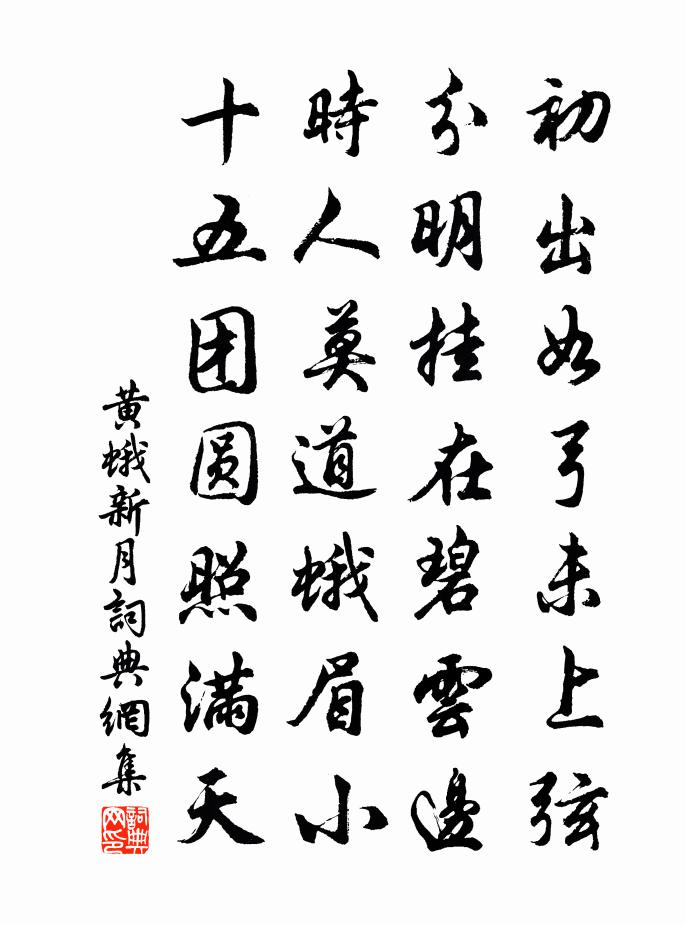 初出如弓未上弦
分明挂在碧雲邊
時人莫道蛾眉小
十五团圆照滿天
黄蛾新月詞典網集
詞典网印